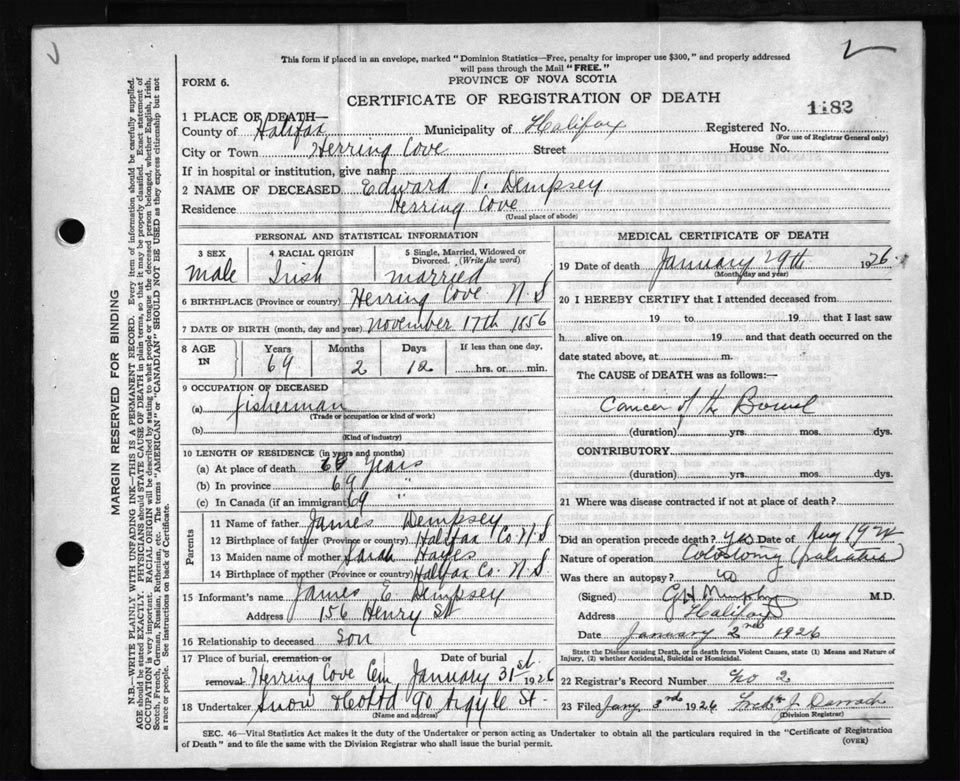 This form if placed in an envelope, marked "Dominion Statistics—Free, penalty for improper use $300," and properly addressed
will pass through the Mail "FREE."
FORM 6.
PROVINCE OF NOVA SCOTIA
CERTIFICATE OF REGISTRATION OF DEATH
1182
1 PLACE OF DEATH—
County of Halifax Municipality of Halifax Registered No.
(For use of Registrar General only)
City or Town Herring Cove Street House No.
If in hospital or institution, give name
2 NAME OF DECEASED Edward V. Dempsey
Residence Herring Cove
(Usual place of abode)
PERSONAL AND STATISTICAL INFORMATION
3 SEX 4 RACIAL ORIGIN 5 Single, Married, Widowed or
Divorced. (Write the word)
Male Irish married
6 BIRTHPLACE (Province or country) Herring Cove N.S
7 DATE OF BIRTH (month, day and year) November 17th 1856
8 AGE IN Years Months Days If less than one day,
69 2 12 hrs. or min.
9 OCCUPATION OF DECEASED
(a) fisherman
(Trade or occupation or kind of work)
(b)
(Kind of industry)
10 LENGTH OF RESIDENCE (in years and months)
(a) At place of death years
(b) In province 69 "
(c) In Canada (if an immigrant) 69
Parents
11 Name of father James Dempsey
12 Birthplace of father (Province or country) Halifax Co. N.S
13 Maiden name of mother Sarah Hayes
14 Birthplace of mother (Province or country) Halifax Co. N.S.
15 Informant's name James E. Dempsey
Address 156 Henry St
16 Relationship to deceased Son
17 Place of burial, cremation or Date of burial
removal Herring Cove Cem January 31st 1926
18 Undertaker Snow 90 Argyle St.
(Name and address)
MEDICAL CERTIFICATE OF DEATH
19 Date of death January 29th 1926.
(Month, day and year)
20 I HEREBY CERTIFY that I attended deceased from
19 to 19 that I last saw
h alive on 19 and that death occurred on the
date stated above, at m.
The CAUSE of DEATH was as follows:—
Cancer of the Bowel
(duration) yrs. mos. dys.
CONTRIBUTORY
(duration) yrs. mos. dys.
21 Where was disease contracted if not at place of death?
Did an operation precede death? yes Date of Aug
Nature of operation Colostomy
Was there an autopsy? no
(Signed) G H Murphy M.D.
Address Halifax
Date January 2nd 1926
State the Disease causing Death, or in death from Violent Causes, state (1) Means and Nature of
Injury, (2) whether Accidental, Suicidal or Homicidal.
22 Registrar's Record Number No 2
23 Filed Jany 3rd 1926 Fredk J. Darrach
(Division Registrar)
SEC. 46—Vital Statistics Act makes it the duty of the Undertaker or person acting as Undertaker to obtain all the particulars required in the "Certificate of Registration
of Death" and to file the same with the Division Registrar who shall issue the burial permit.
(OVER)
MARGIN RESERVED FOR BINDING
N.B.—WRITE PLAINLY WITH UNFADING INK—THIS IS A PERMANENT RECORD. Every item of information should be carefully supplied.
AGE should be stated EXACTLY. PHYSICIANS should STATE CAUSE OF DEATH in plain terms, so that it may be properly classified. Exact statement of
OCCUPATION is very important. RACIAL ORIGIN will be described by stating to what people or tongue the deceased person belonged, whether English, Irish,
Scotch, French, German, Russian, Ruthenian, etc. The terms "AMERICAN" or "CANADIAN" SHOULD NOT BE USED as they express citizenship but not
a race or people. See instructions on back of Certificate.